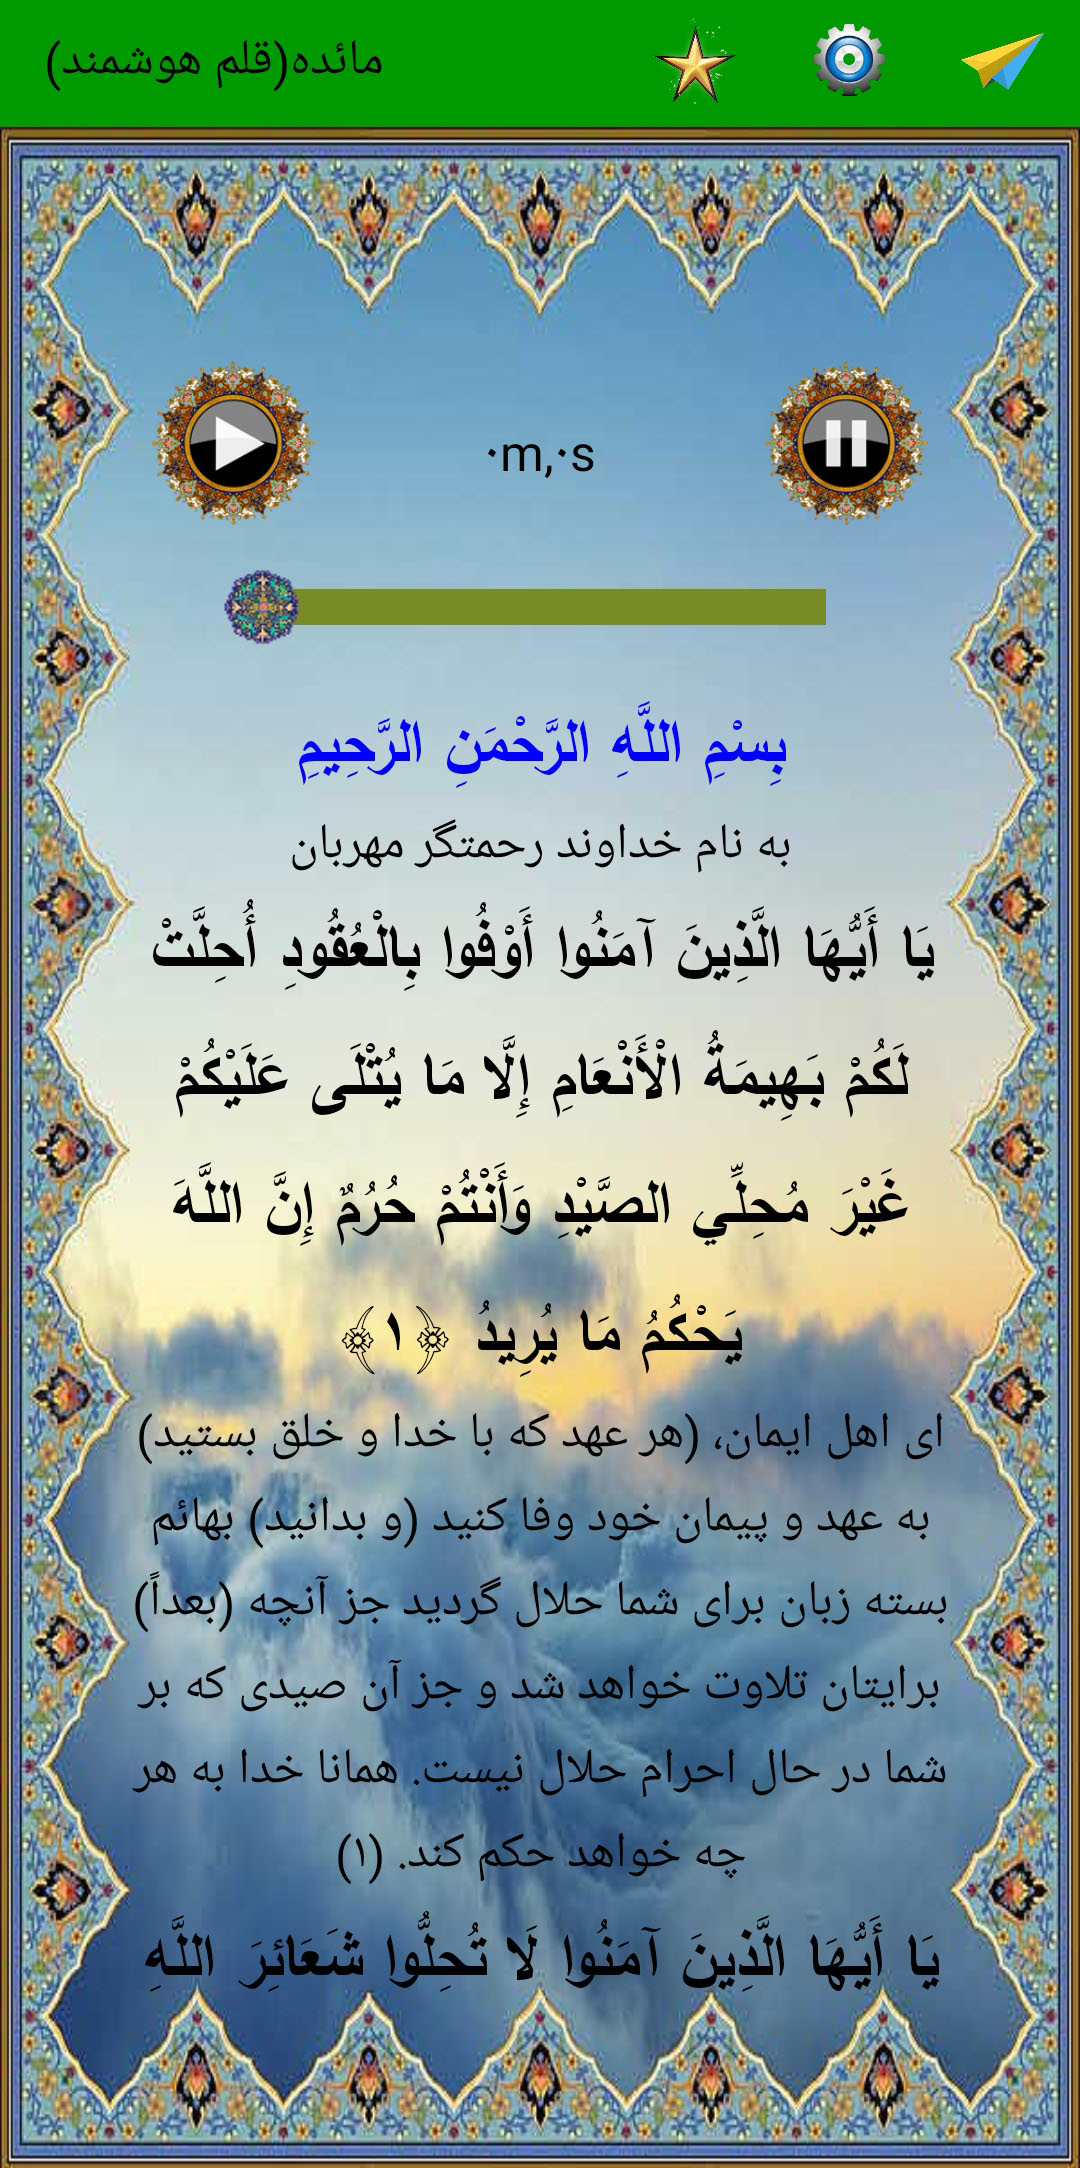 مائده(قلم هوشمند)
۰m,۰s
بِسْمِ اللَّهِ الرَّحْمَنِ الرَّحِيمِ
به نام خداوند رحمتگر مهربان
يَا أَيُّهَا الَّذِينَ آمَنُوا أَوْفُوا بِالْعُقُودِ أُحِلَّتْ
لَكُمْ بَهِيمَةُ الْأَنْعَامِ إِلَّا مَا يُتْلَى عَلَيْكُمْ
غَيْرَ مُحِلِّي الصَّيْدِ وَأَنْتُمْ حُرُمٌ إِنَّ اللَّهَ
يَحْكُمُ مَا يُرِيدُ ﴿۱﴾
ای اهل ایمان، (هر عهد که با خدا و خلق بستید)
به عهد و پیمان خود وفا کنید (و بدانید) بهائم
بسته زبان برای شما حلال گردید جز آنچه (بعداً)
برایتان تلاوت خواهد شد و جز آن صیدی که بر
شما در حال احرام حلال نیست. همانا خدا به هر
چه خواهد حکم کند. (۱)
يَا أَيُّهَا الَّذِينَ آمَنُوا لَا تُحِلُّوا شَعَائِرَ اللَّهِ